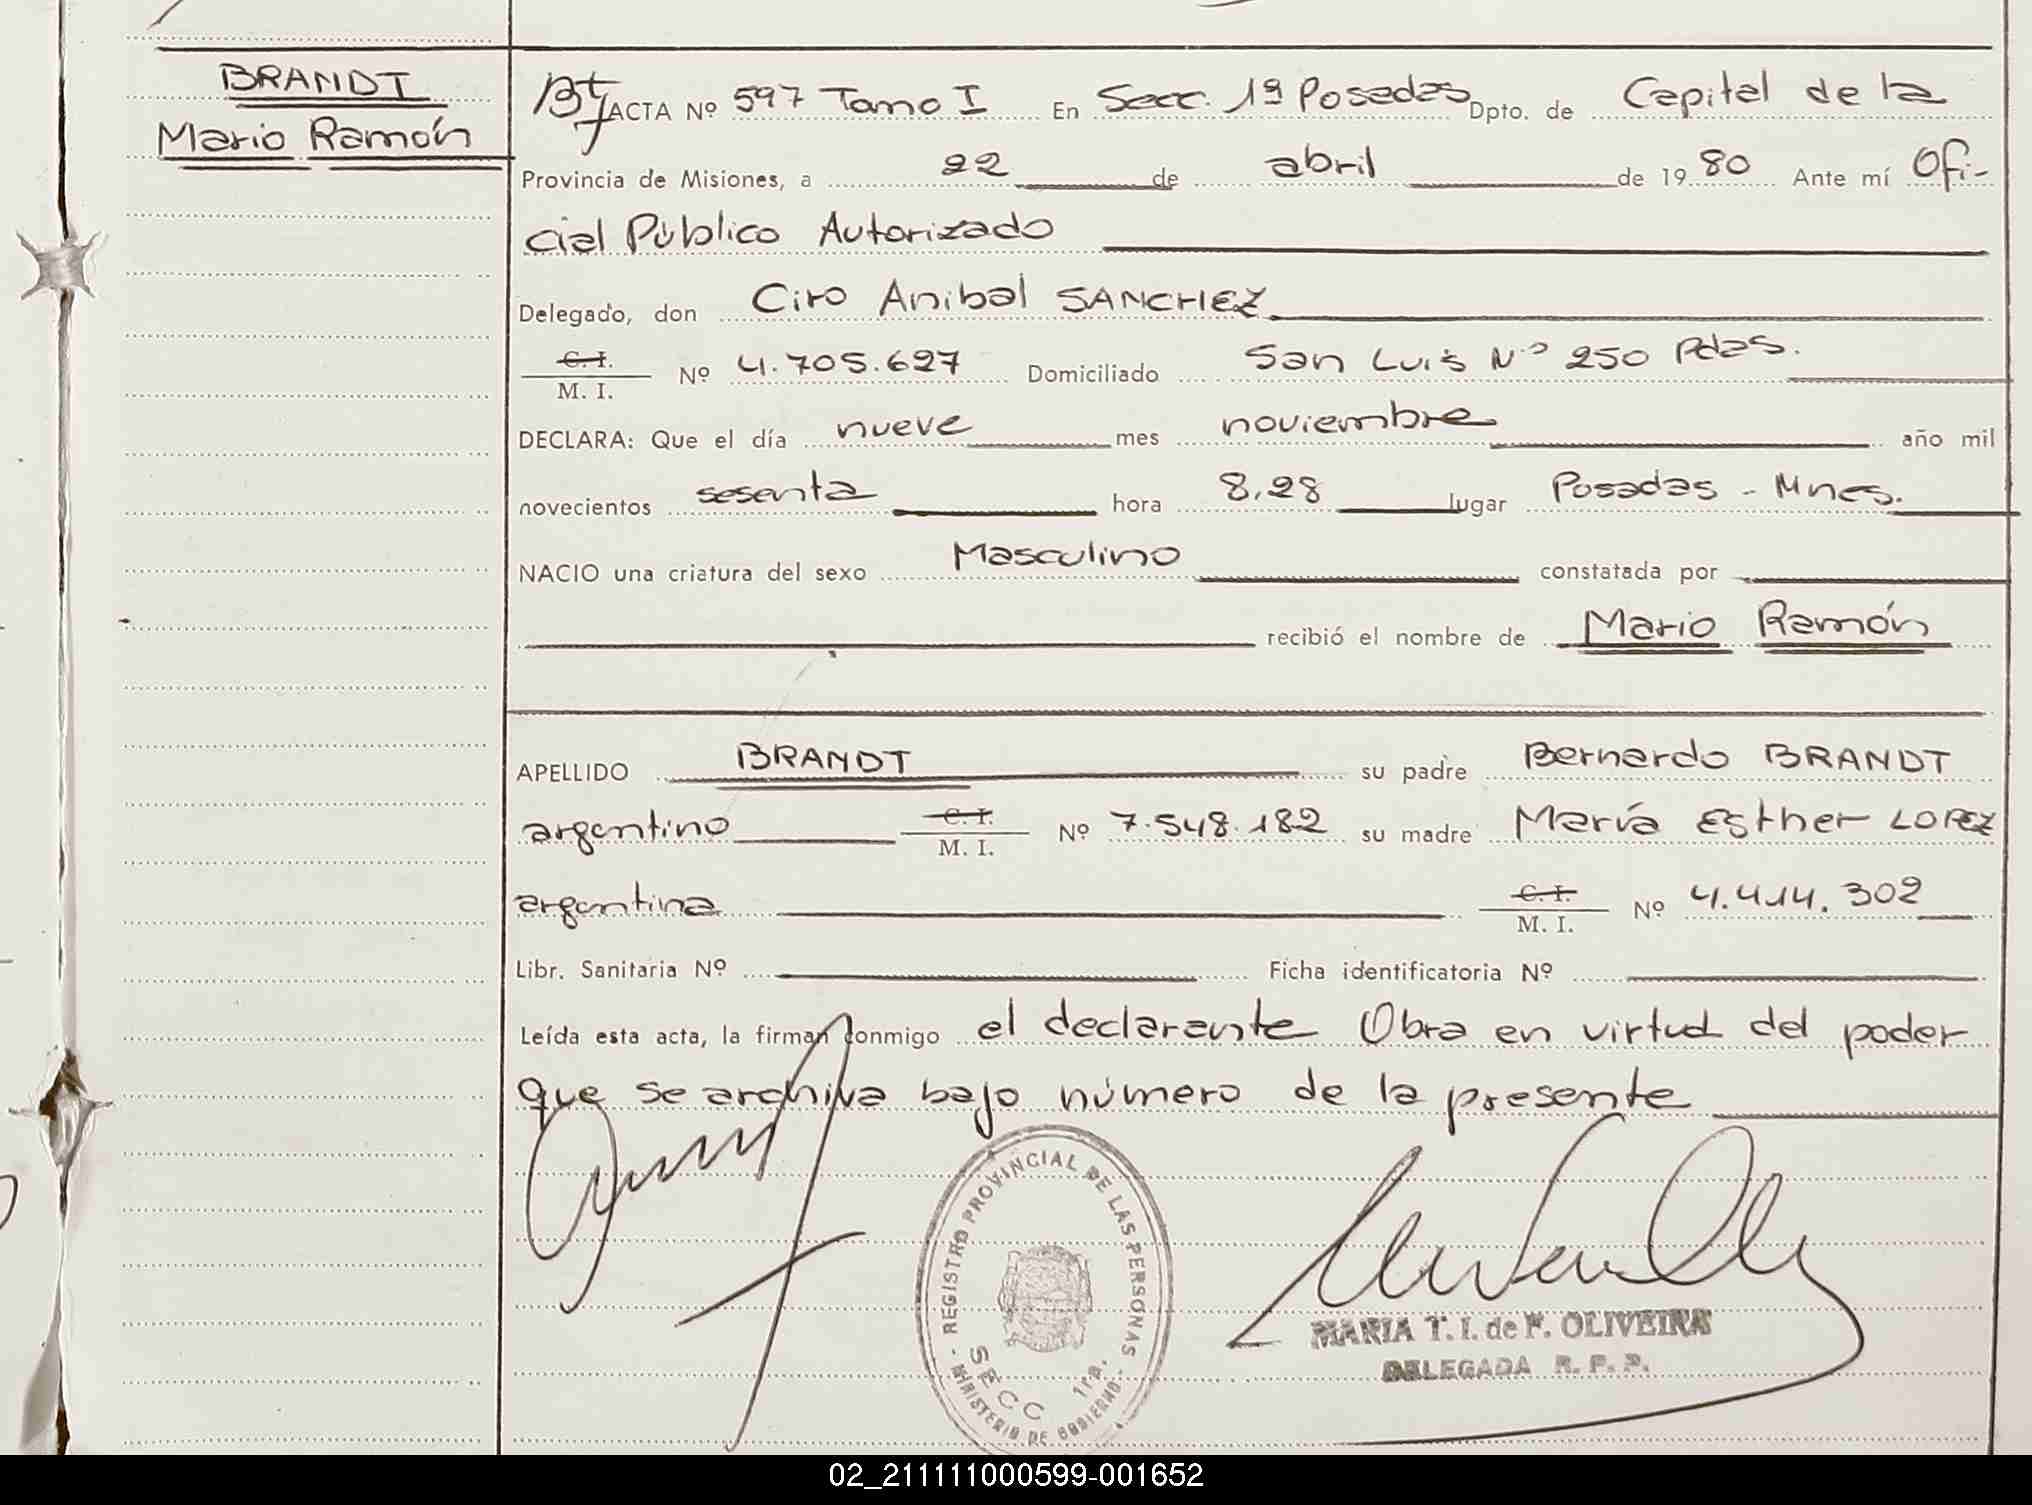 BRANDT
Mario Ramón
ACTA Nº 597 Tomo I En Secc. 1ª Posadas Dpto. de Capital de la
Provincia de Misiones, a 22 de abril de 1980 Ante mí Ofi-
cial Público Autorizado
Delegado, don Ciro Anibal SANCHEZ
C. I.
M. I. Nº 4.705.627 Domiciliado San Luis Nº 250 Pdas.
DECLARA: Que el día nueve mes noviembre año mil
novecientos sesenta hora 8,28 lugar Posadas - Mnes.
NACIO una criatura del sexo Masculino constatada por
recibió el nombre de Mario Ramón
APELLIDO BRANDT su padre Bernardo BRANDT
argentino C. I. M. I. Nº 7.548.182 su madre María Esther LOPEZ
argentina C. I. M. I. Nº 4.414.302
Libr. Sanitaria Nº Ficha identificatoria Nº
Leída esta acta, la firman conmigo el declarante Obra en virtud del poder
que se archiva bajo número de la presente
- REGISTRO PROVINCIAL DE LAS PERSONAS -
SECC 1ra.
MINISTERIO DE GOBIERNO
MARIA T. I. de F. OLIVEIRA
DELEGADA R. P. P.
02_211111000599-001652